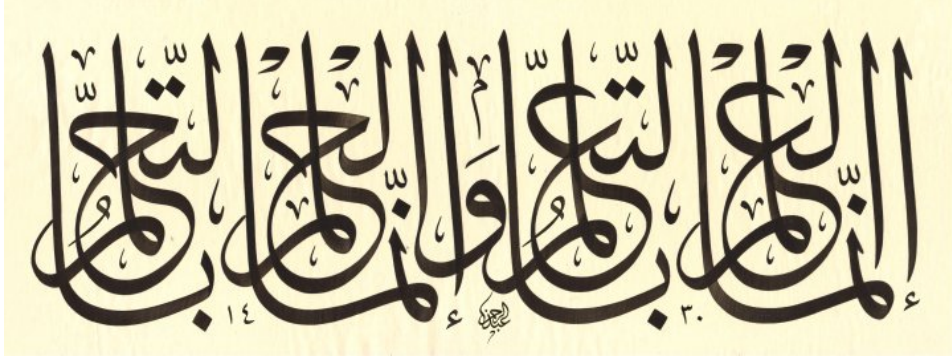 إنَّما الْعِلْمُ بِالتَّعَلُّمِ وَإنَّما الْحِلْمُ بِالتَّحَلُّمِ
٣٠ ١٤